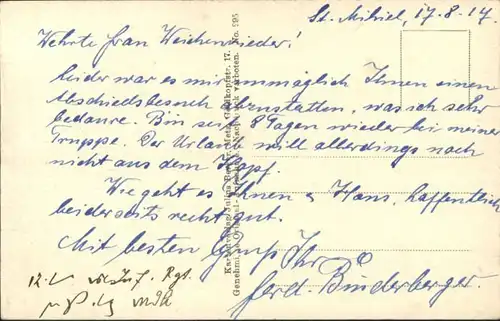 St. Mihiel, 17.8.17.
Werte Frau Weichenrieder!
Leider war es mir unmöglich Ihnen einen
Abschiedsbesuch abzustatten, was ich sehr
bedaure. Bin seit 8 Tagen wieder bei meiner
Truppe. Der Urlaub will allerdings noch
nicht aus dem Kopf.
Wie geht es Ihnen u. Hans, hoffentlich
beiderseits recht gut.
Mit besten Gruß Ihr
Ferd. Binderberger.
Rgt.
17.
No. 295